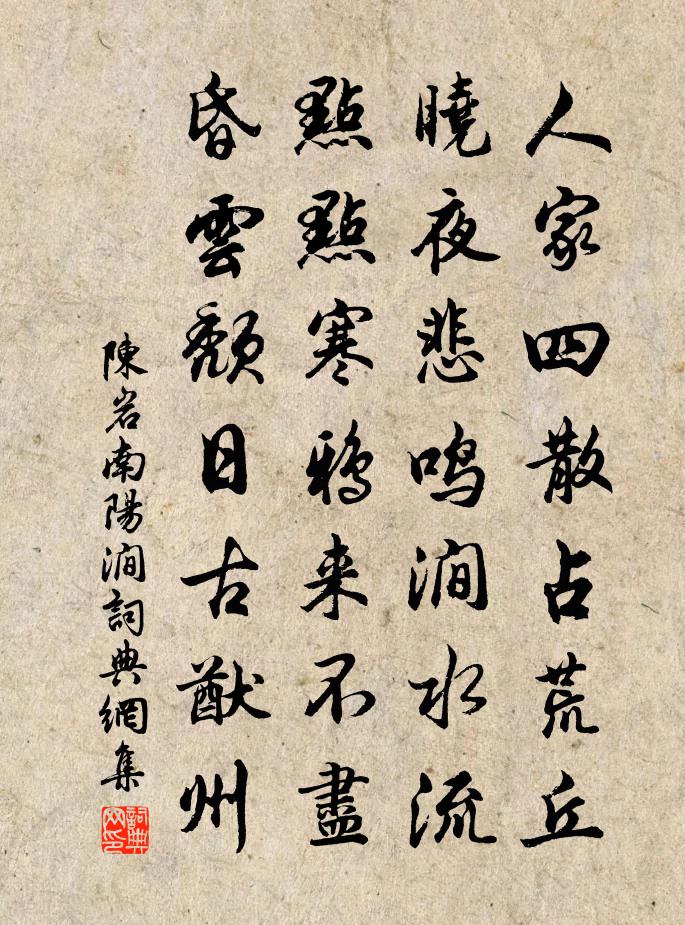 人家四散占荒丘
曉夜悲鳴澗水流
點點寒鴉来不盡
昏雲頹日古猷州
陳岩南陽澗詞典網集
詞典网印